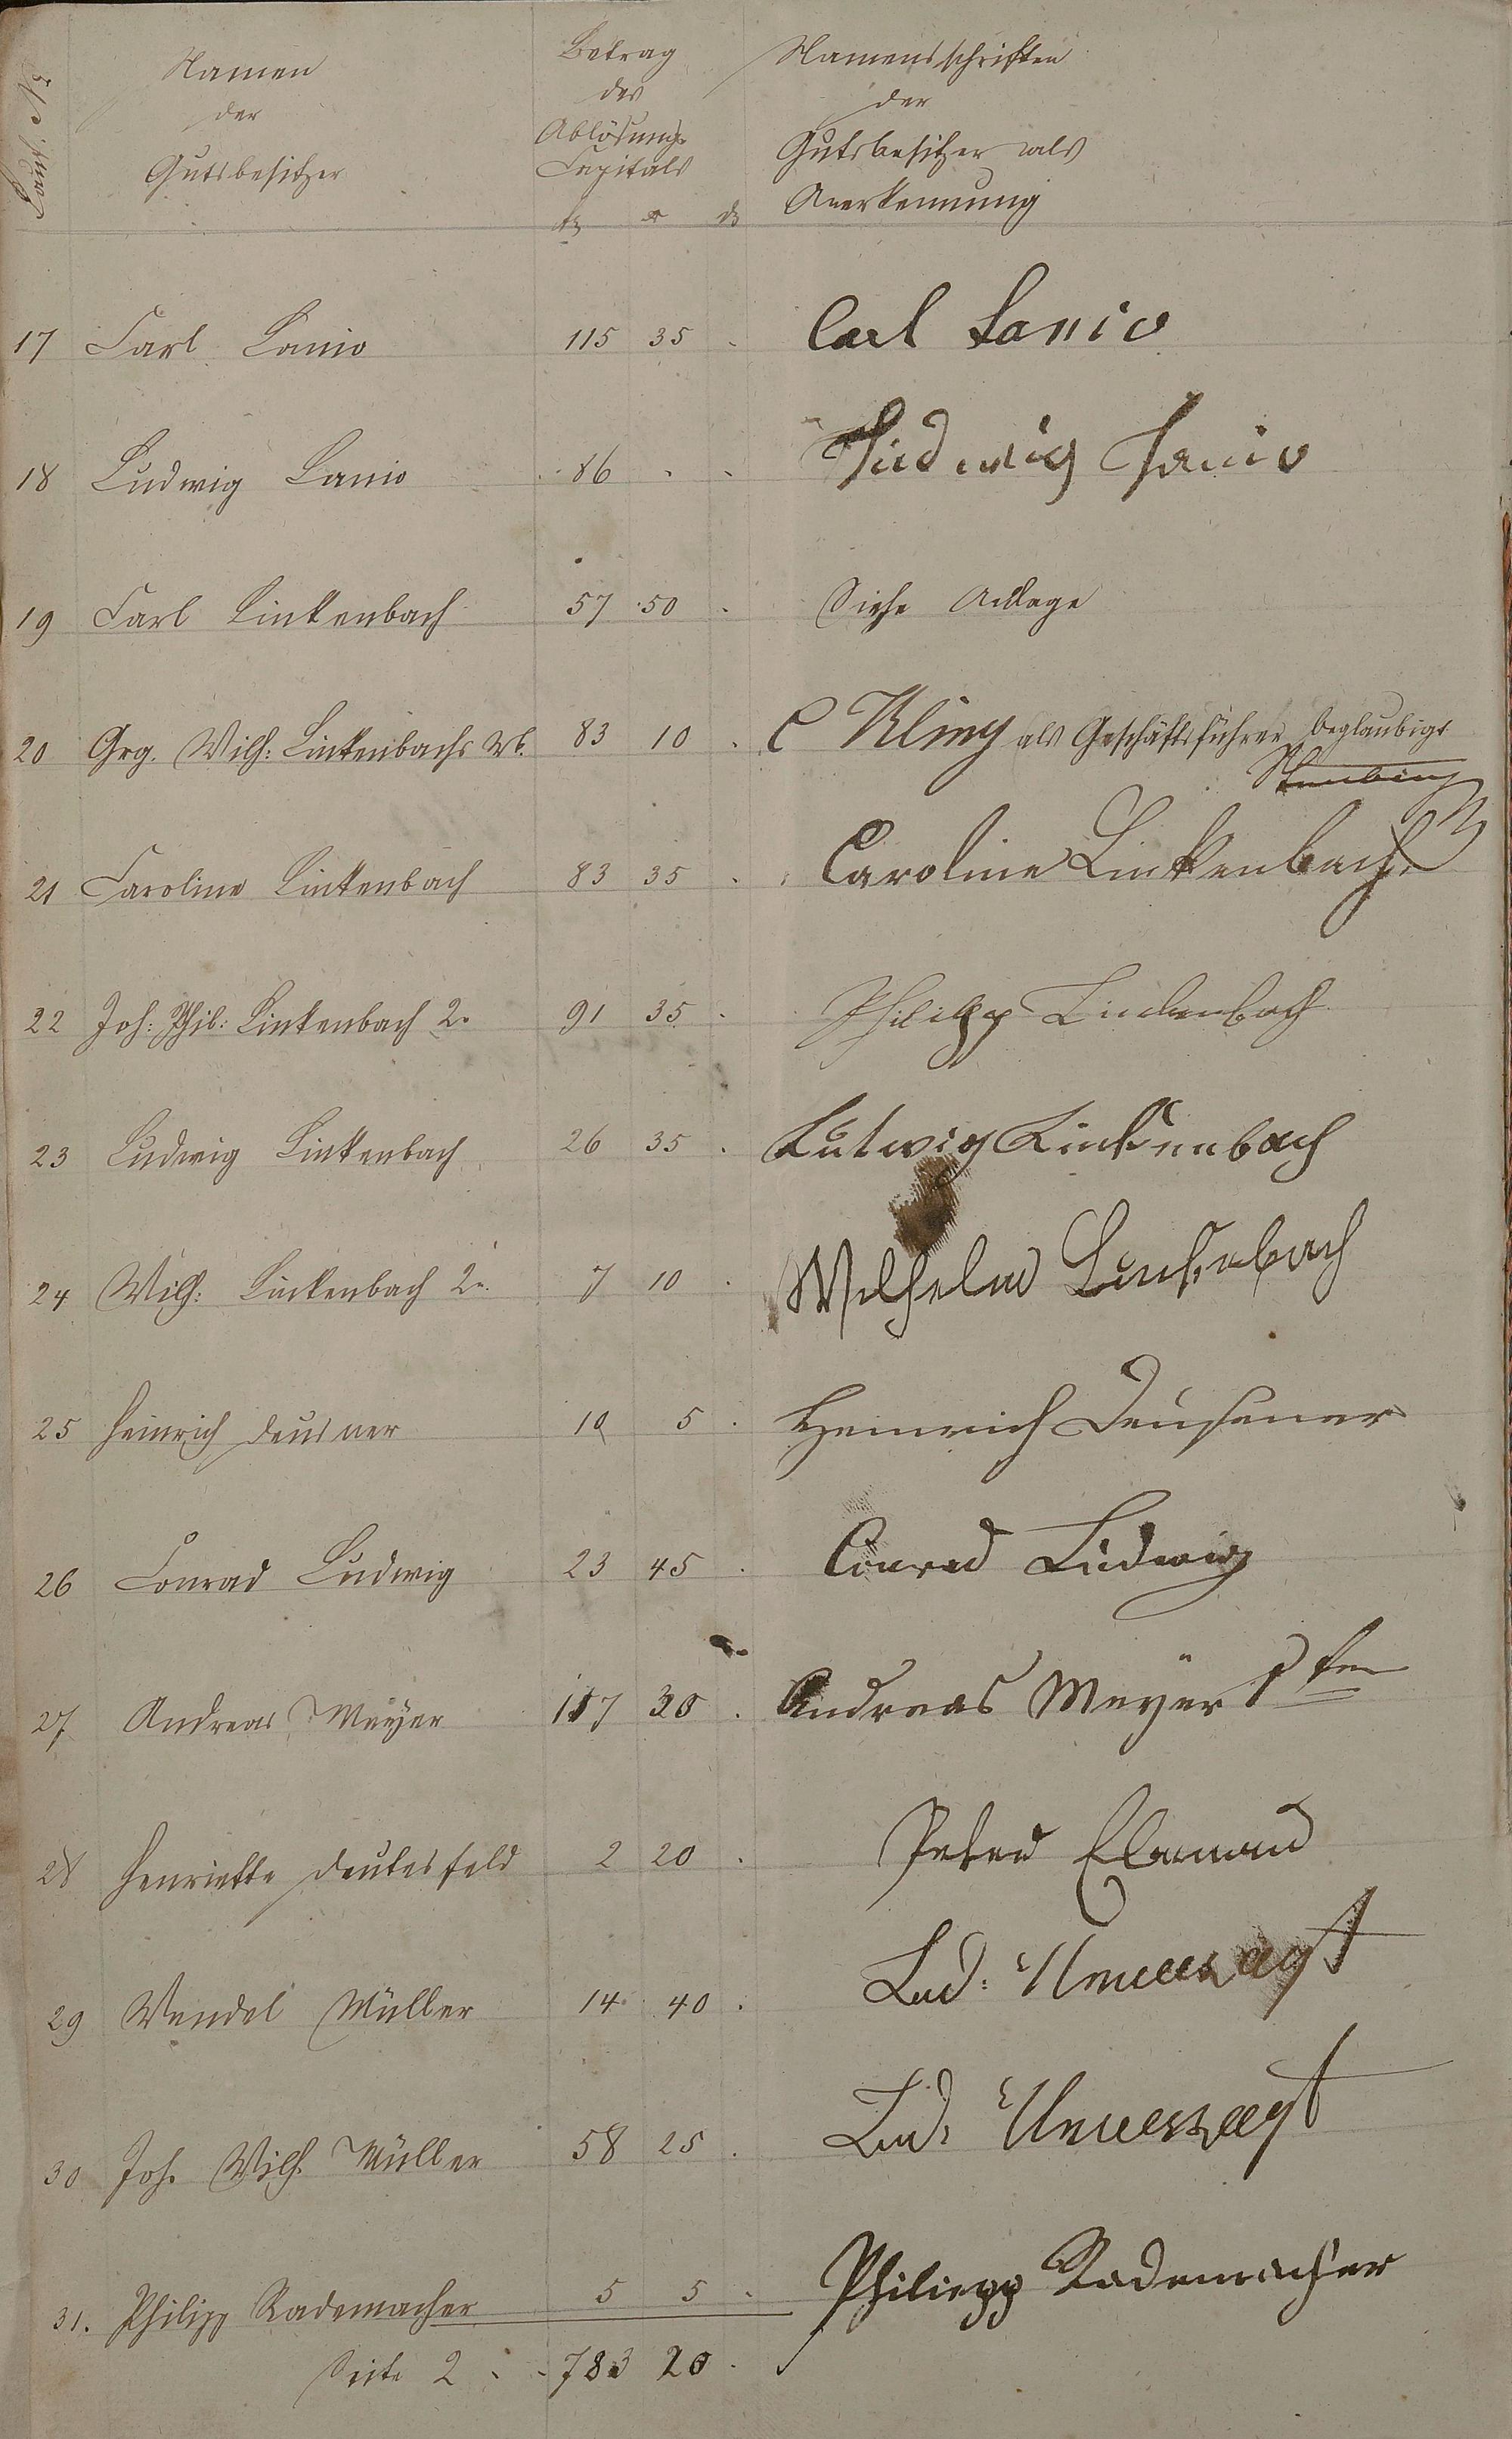 Lauf. N.
Namen
der
Gutsbesitzer
Betrag
des
Ablösungs
Capitals
Namensschriften
der
Gutsbesitzer als
Anerkennung
17 Carl Lanio 115 35 . Carl Lanio
18 Ludwig Lanio 86 . . Ludwig Lanio
19 Carl Linkenbach 57 50 . Siehe Anlage
20 Grg. Wilh: Linkenbachs Wb. 83 10 . C Kling als Geschäftsführer beglaubigt
21 Caroline Linkenbach 83 35 . Caroline Linkenbach
22 Joh: Phil: Linkenbach 2r 91 35 . Philipp Linkenbach
23 Ludwig Linkenbach 26 35 . Lutwig Linkenbach
24 Wilh: Linkenbach 2r. 7 10 . Wilhelm Linkenbach
25 Heinrich Deusner 10 5 . Heinrich Deusener
26 Conrad Ludwig 23 45 . Conrad Ludwig
27 Andreas Meÿer 117 30 . Andreas Meÿer
28 Henriette Deutesfeld 2 20 . Peter
29 Wendel Müller 14 40 . Lud: Unverzagt
30 Joh. Wilh. Müller 58 25 . Lud: Unverzagt
31. Philipp Rademacher 5 5 . Philiepp Rademacher
Seite 2 . . 783 20 .